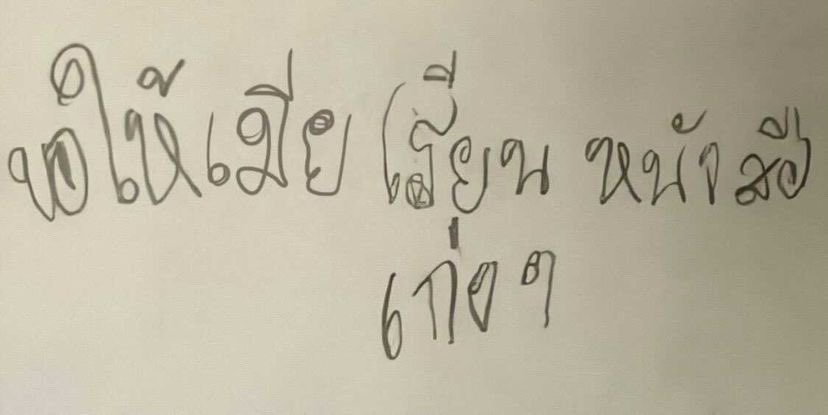 ขอให้เมีย เรียน หนังสือ
เก่งๆ